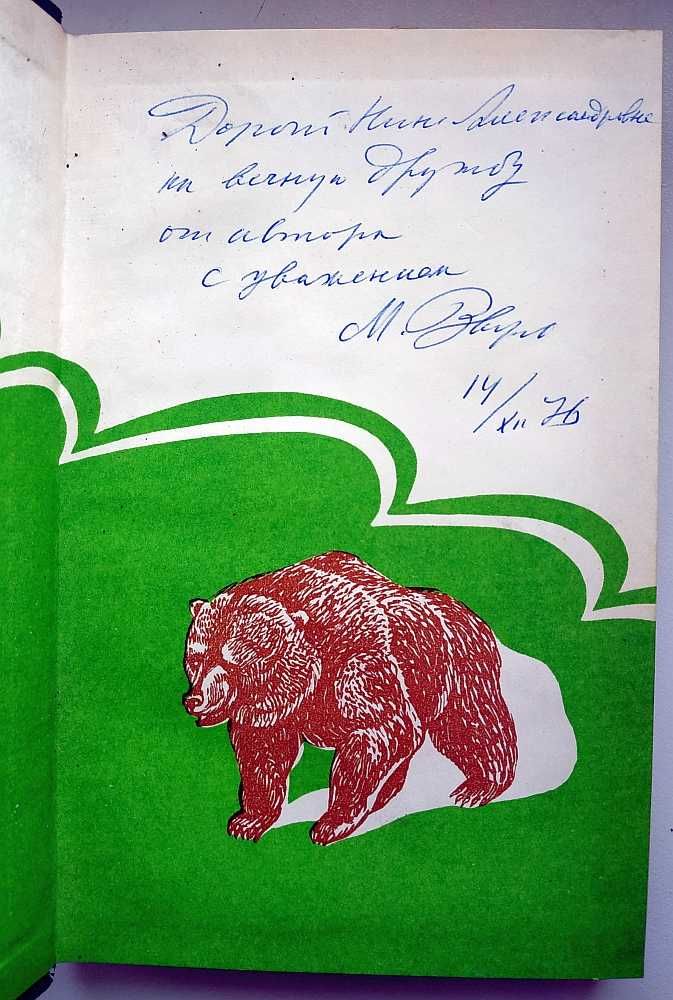 Дорогой Нине Александровне
на вечную дружбу
от автора
с уважением
М. Зверев
14/XII 76